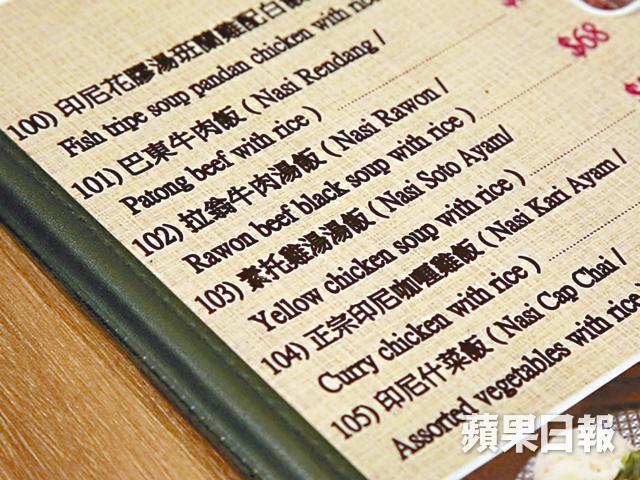 100) 印尼花膠湯班蘭雞配白飯
Fish tripe soup pandan chicken with rice
101) 巴東牛肉飯 ( Nasi Rendang /
Patong beef with rice )
$68
102) 拉翁牛肉湯飯 ( Nasi Rawon /
Rawon beef black soup with rice )
103) 素托雞湯湯飯 ( Nasi Soto Ayam/
Yellow chicken soup with rice )
104) 正宗印尼咖喱雞飯 ( Nasi Kari Ayam /
Curry chicken with rice )
105) 印尼什菜飯 ( Nasi Cap Chai /
Assorted vegetables with rice
蘋果日報